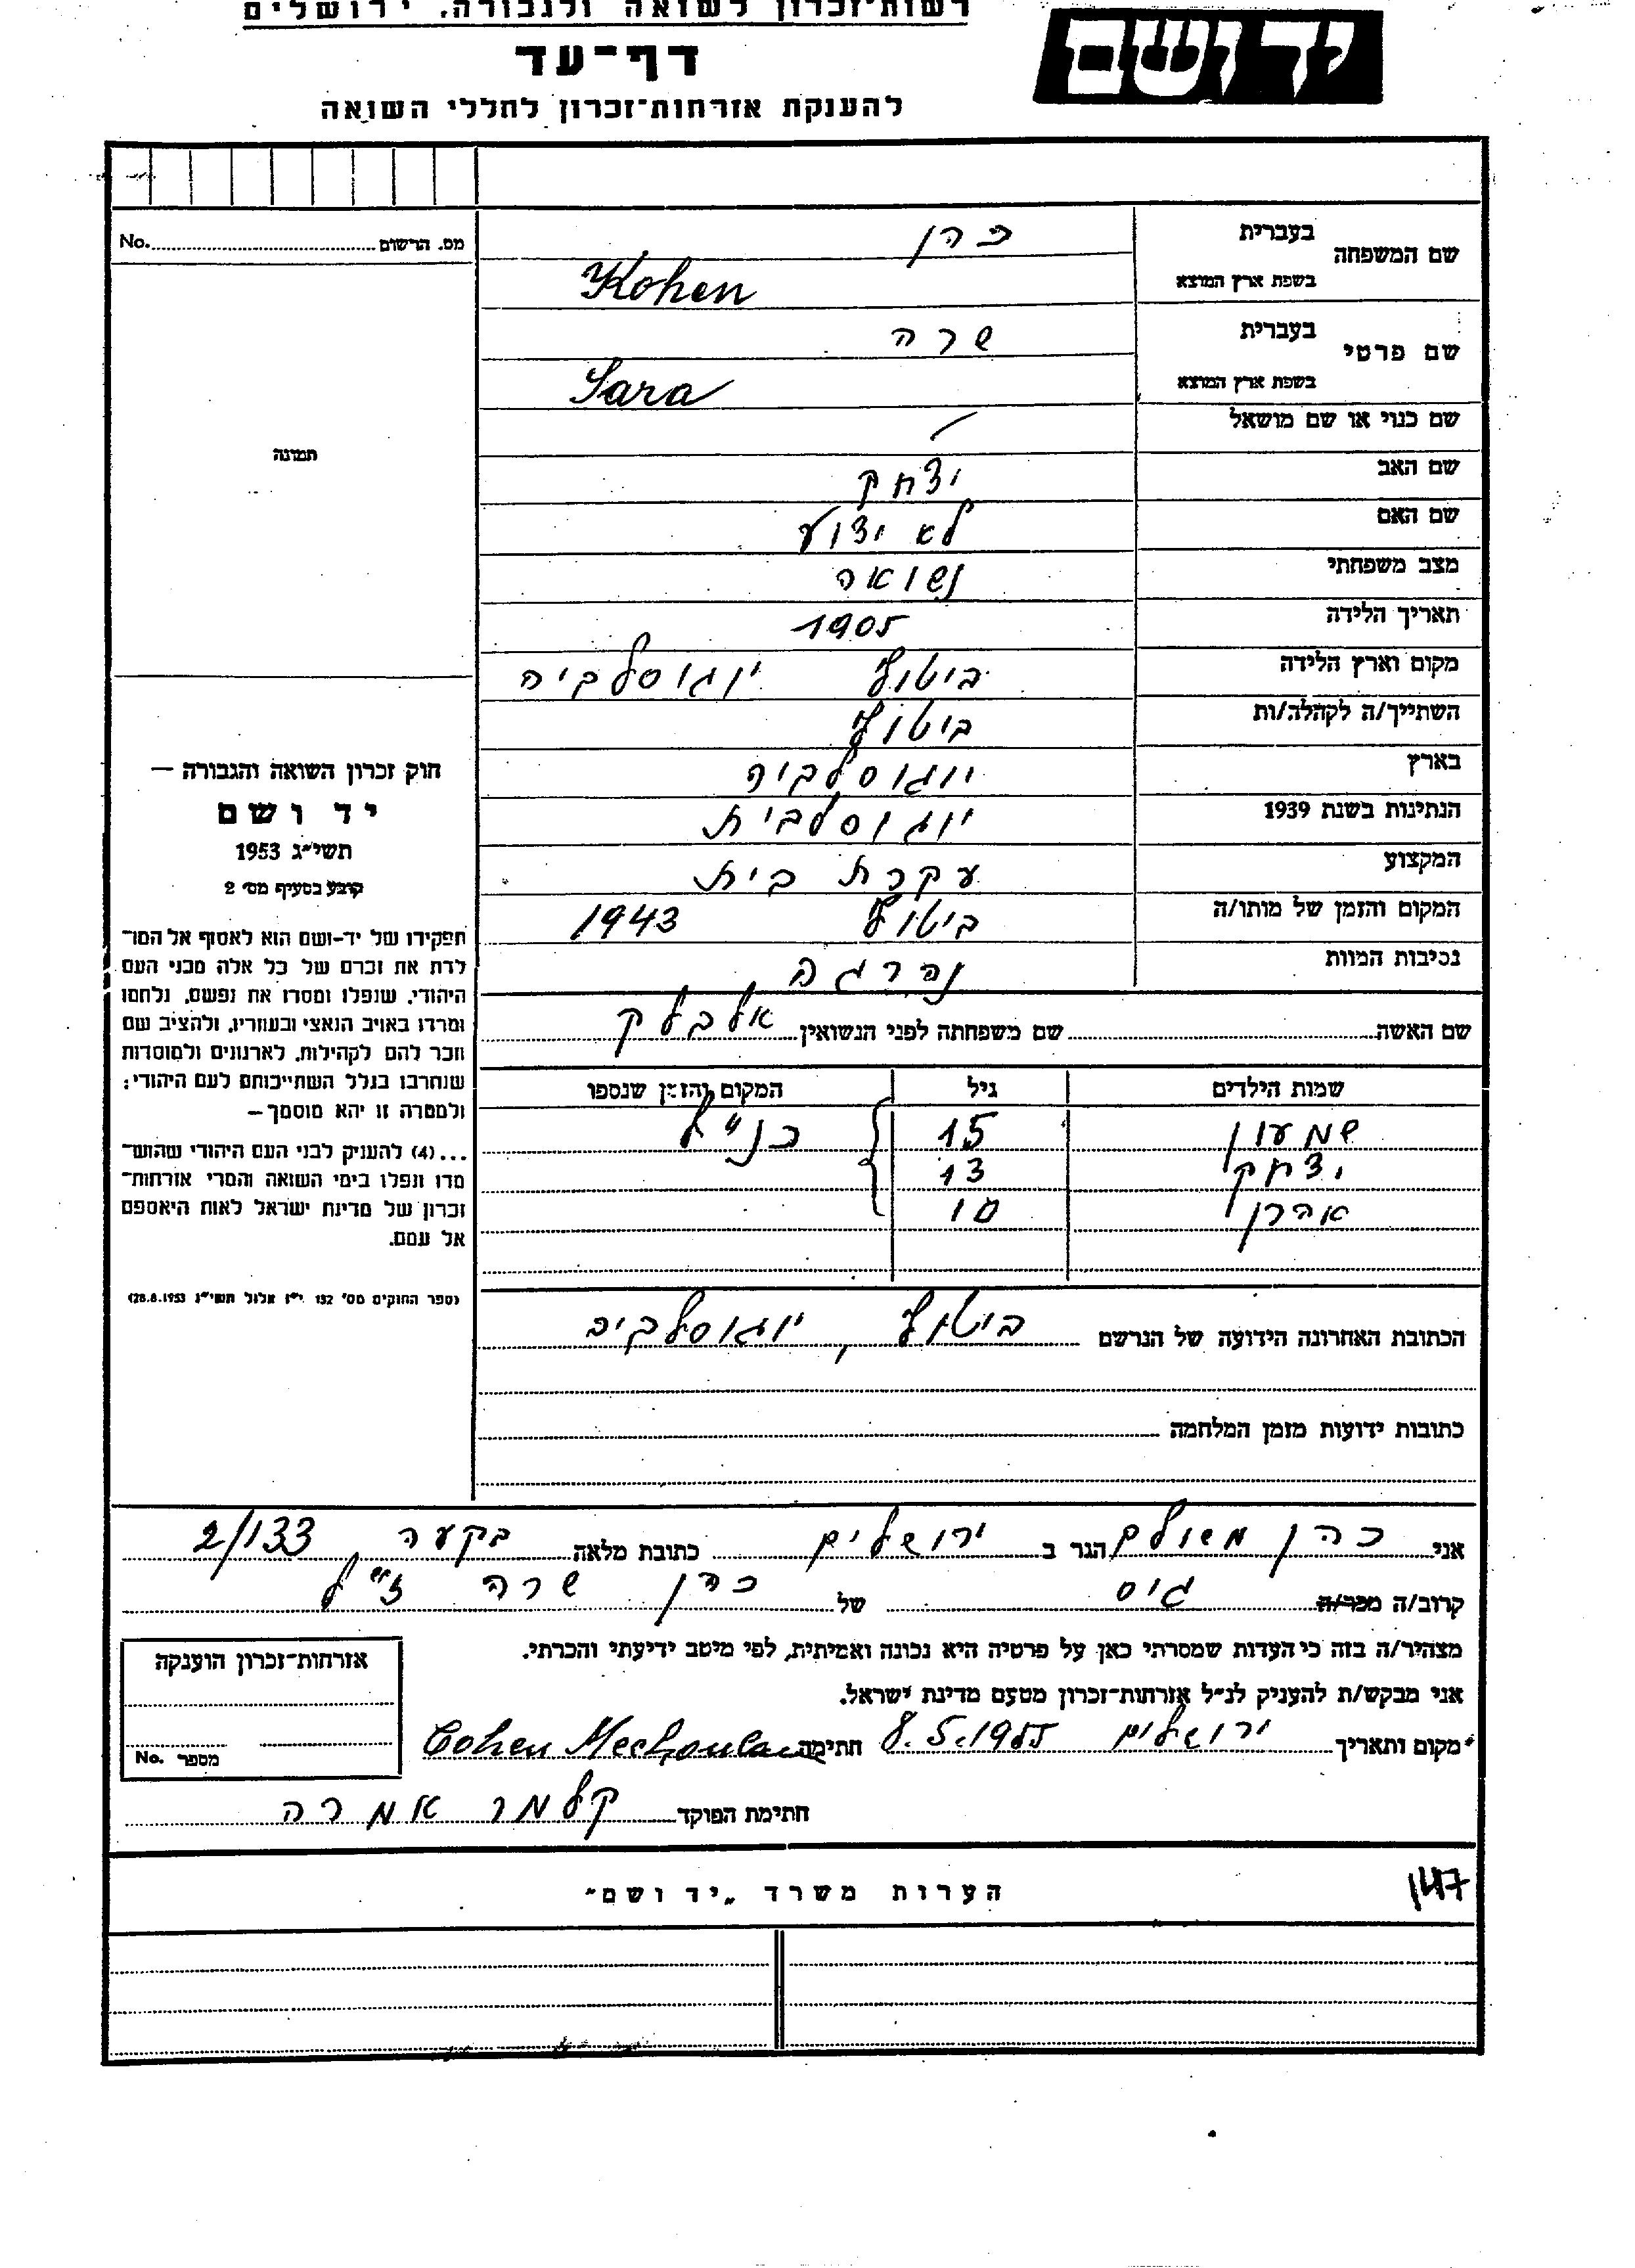 רשות־זכרון לשואה ולגבורה. ירושלים
יד ושם
דף־עד
להענקת אזרחות־זכרון לחללי השואה
מס. הרשום No.
שם המשפחה
בעברית כהן
בשפת ארץ המוצא Kohen
שם פרטי
בעברית שרה
בשפת ארץ המוצא Sara
שם כנוי או שם מושאל /
שם האב יצחק
שם האם לא ידוע
מצב משפחתי נשואה
תאריך הלידה 1905
מקום וארץ הלידה ביטולי יוגוסלביה
השתייך/ה לקהלה/ות ביטולי
בארץ יוגוסלביה
הנתינות בשנת 1939 יוגוסלבית
המקצוע עקרת בית
המקום והזמן של מותו/ה ביטולי 1943
נסיבות המוות נהרגה
שם האשה שם משפחתה לפני הנשואין אלבלק
שמות הילדים גיל המקום והזמן שנספו
שמעון 15 כנ״ל
יצחק 13
אהרן 10
הכתובת האחרונה הידועה של הנרשם ביטולי, יוגוסלביה
כתובות ידועות מזמן המלחמה
תמונה
חוק זכרון השואה והגבורה —
יד ושם
תשי״ג 1953
קובע בסעיף מס׳ 2
תפקידו של יד-ושם הוא לאסוף אל המו־
לדת את זכרם של כל אלה מבני העם
היהודי, שנפלו ומסרו את נפשם, נלחמו
ומרדו באויב הנאצי ובעוזריו, ולהציב שם
וזכר להם לקהילות, לארגונים ולמוסדות
שנחרבו בגלל השתייכותם לעם היהודי;
ולמטרה זו יהא מוסמך—
...(4) להעניק לבני העם היהודי שהוש־
מדו ונפלו בימי השואה והמרי אזרחות־
זכרון של מדינת ישראל לאות היאספם
אל עמם.
(ספר החוקים מס׳ 132 י״ז אלול תשי״ג 28.8.1953)
אני כהן משולם הגר ב ירושלים כתובת מלאה בקעה 2/133
קרוב/ה מכר/ה גיס של כהן שרה ז״ל
מצהיר/ה בזה כי העדות שמסרתי כאן על פרטיה היא נכונה ואמיתית, לפי מיטב ידיעתי והכרתי.
אני מבקש/ת להעניק לנ״ל אזרחות־זכרון מטעם מדינת ישראל.
מקום ותאריך ירושלים 8.5.1955 חתימה Cohen Mechoulam
חתימת הפוקד קלמר אמרה
אזרחות־זכרון הוענקה
מספר No.
147
הערות משרד „יד ושם״